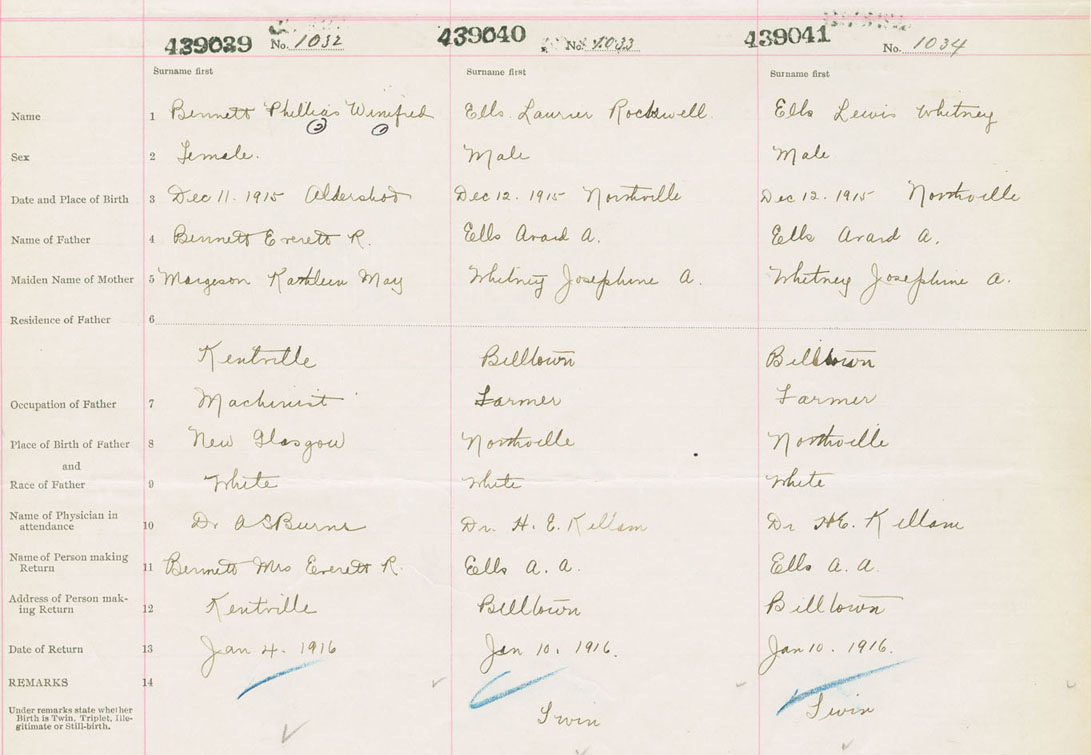 439039 No. 1032 439040 No. 1033 439041 No. 1034
Surname first Surname first Surname first
Name 1 Bennett Phillias Winifred Ells. Laurier Rockwell. Ells Lewis Whitney
Sex 2 Female. Male Male
Date and Place of Birth 3 Dec 11. 1915 Aldershot Dec 12. 1915 Northville Dec 12. 1915 Northville
Name of Father 4 Bennett Everett R. Ells Avard A. Ells Avard A.
Maiden Name of Mother 5 Margeson Kathleen May Whitney Josephine A. Whitney Josephine A.
Residence of Father 6
Kentville Billtown Billtown
Occupation of Father 7 Machinist Farmer Farmer
Place of Birth of Father 8 New Glasgow Northville Northville
and
Race of Father 9 White White White
Name of Physician in
attendance 10 Dr A S Burns Dr. H. E. Killam Dr H E. Killam
Name of Person making
Return 11 Bennett Mrs Everett R. Ells A. A. Ells A. A.
Address of Person mak-
ing Return 12 Kentville Billtown Billtown
Date of Return 13 Jan 4. 1916 Jan 10. 1916. Jan 10. 1916.
REMARKS 14
Under remarks state whether
Birth is Twin, Triplet, Ille-
gitimate or Still-birth.
Twin Twin